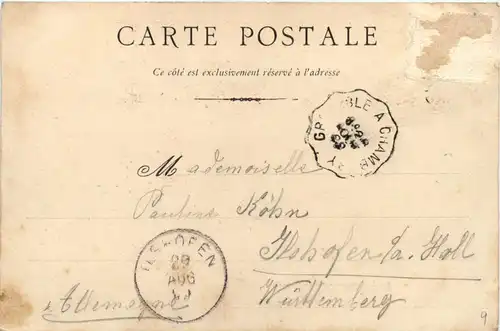 CARTE POSTALE
Ce côté est exclusivement réservé à l'adresse
GRENOBLE A CHAMBERY
Mademoiselle
Pauline Köhn
Ilshofen a. Hall
Württemberg
Allemagne
ILSHOFEN
29
AUG
9